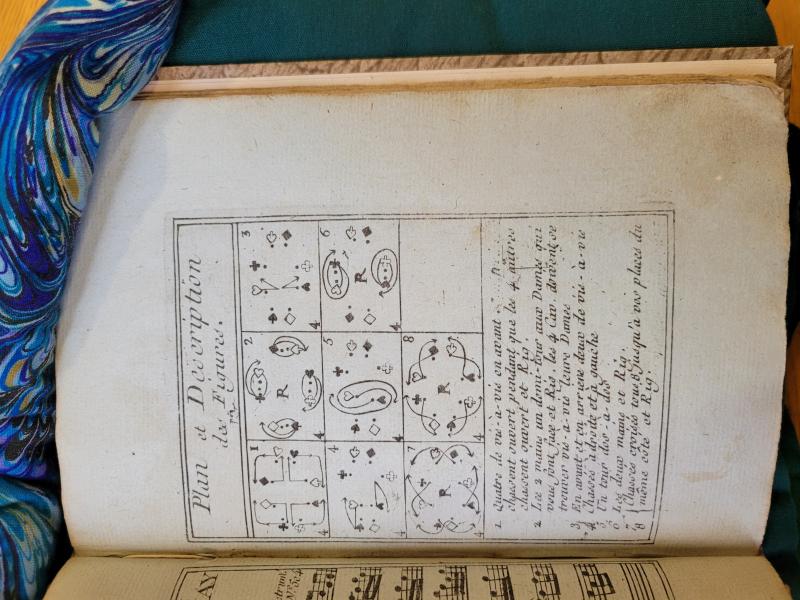 Plan et Description
des Figures.
1
2
3
4
4
4
R
4
5
6
4
4
4
R
7
8
4
4
R
1. Quatre de vis-a-vis en avant
chassent ouvert pendant que les 4 autres
chassent ouvert et Rig.
2. Les 2 mains un demi-tour aux Dames qui
vous font face et Rig. les 4 Cav. doivent se
trouver vis-a-vis leurs Dames
3. En avant et en arriere deux de vis-à-vis
4. Chassés à droite et à gauche
5. Un tour dos-à-dos
6. Les deux mains et Rig.
7. Chasses croisés tous 8 jusqu'à vos places du
8 même côté et Rig.
AY